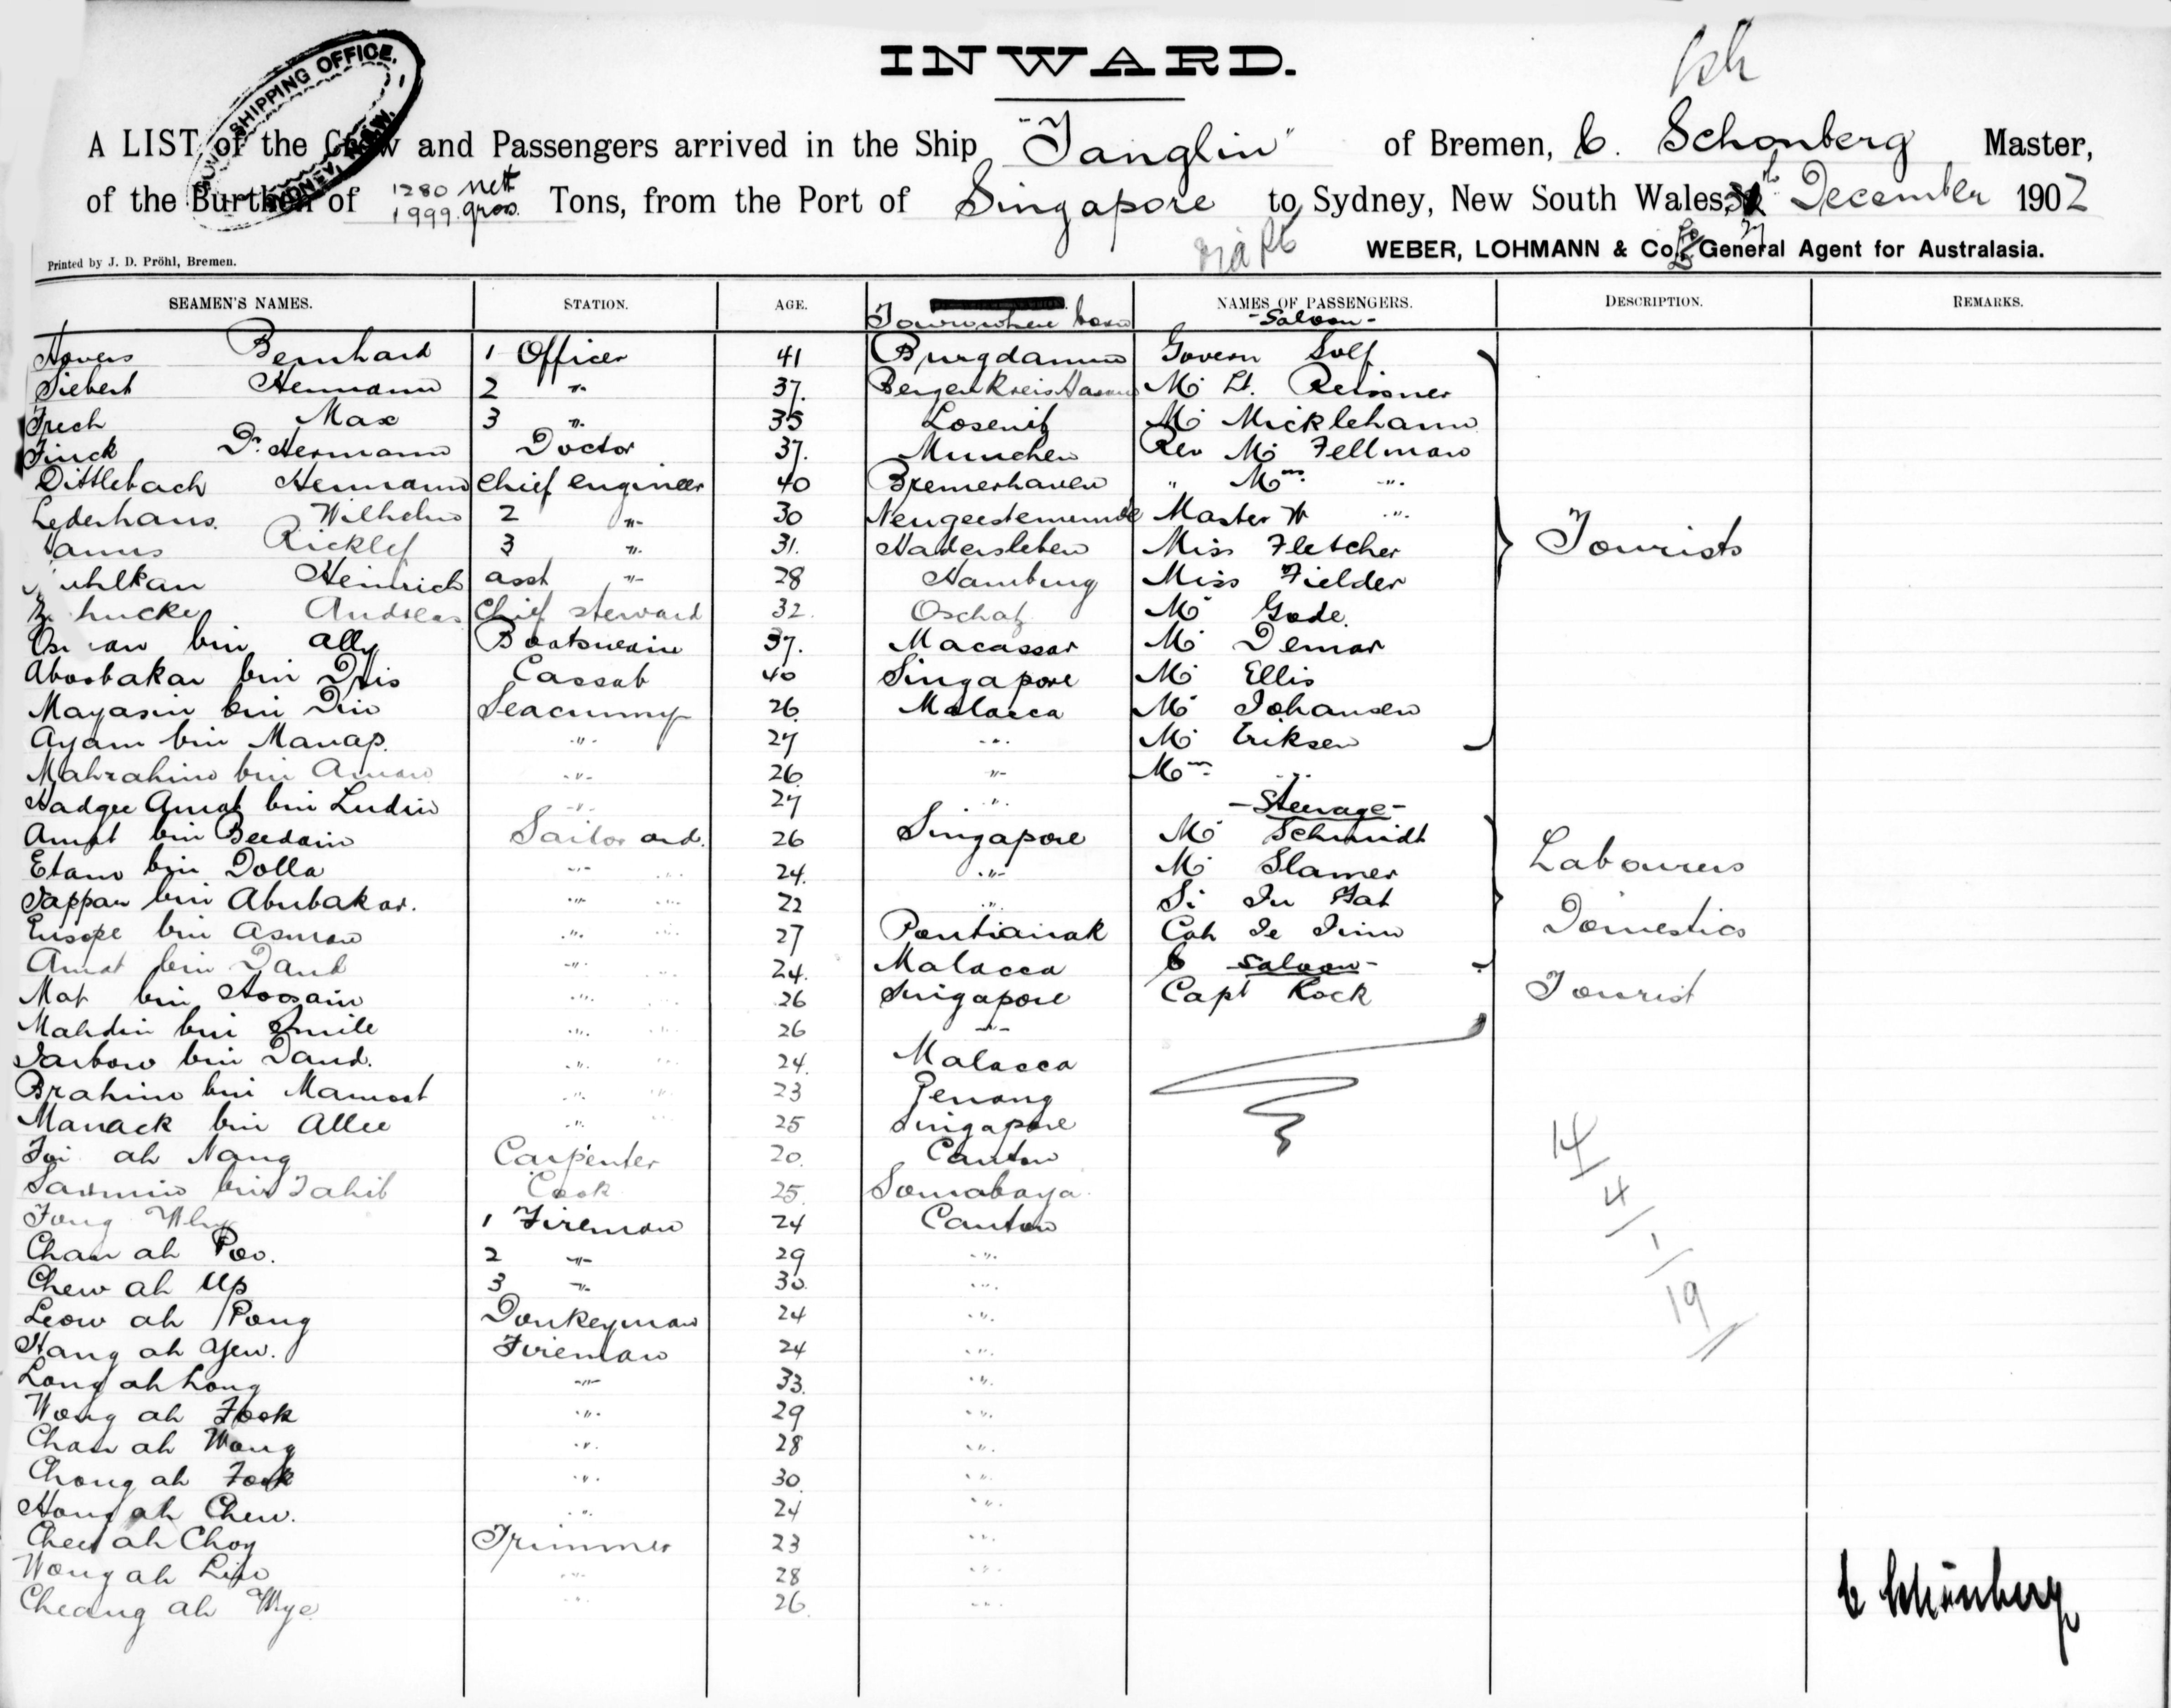 SHIPPING OFFICE.
SYDNEY, N.S.W.
INWARD.
A LIST of the Crew and Passengers arrived in the Ship "Tanglin" of Bremen, C. Schonberg Master,
of the Burthen of 1280 nett 1999 gross. Tons, from the Port of Singapore to Sydney, New South Wales, December 1902
WEBER, LOHMANN & Co. General Agent for Australasia.
Printed by J. D. Pröhl, Bremen.
SEAMEN'S NAMES. STATION. AGE. Town where born NAMES OF PASSENGERS. DESCRIPTION. REMARKS.
-Saloon-
Bernhard 1 Officer 41 Burgdamm Govern Solf
Siebert Hermann 2 " 37. Bergen Kreis M. Lt. Reissner
Frech Max 3 " 35 M. Micklehamn
Finck Dr. Hermann Doctor 37. Munchen Rev M. Fellman
Dittlebach Hermann Chief engineer 40 Bremerhaven " Mrs "
Lederhaus. Wilhelm 2 " 30 Neugeestemunde Master W "
Ricklef 3 " 31. Hadersleben Miss Fletcher Tourists
Heinrich asst " 28 Hamburg Miss Fielder
Andreas Chief steward 32. Oschatz M. Gode.
bin Ally Boatswain 37. Macassar M. Demar
Aboobakar bin Dris Cassab 40 Singapore M. Ellis
Mayasin bin Din Seacunny 26 Malacca M. Johansen
Ayam bin Manap. " 27 " M. Eriksen
Mahrahim bin Aman " 26 " Mrs "
Hadgee Amat bin Ludin " 27 "
-Steerage-
Amat bin Beedain Sailor ord. 26 Singapore M. Schmidt
Etam bin Dolla " " 24. " M. Slamer Labourers
Tappan bin Abubakar. " " 22 " Si
Eusope bin Asman " " 27 Pontianak Domestics
Amat bin Daud " " 24. Malacca C saloon-
Mat bin Hoosain " " 26 Singapore Capt Rock Tourist
Mahdin bin Smile " " 26 "
Sarbow bin Daud. " " 24. Malacca
Brahim bin Mamoat " " 23 Penang
Manack bin Allee " " 25 Singapore
ah Nang Carpenter 20. Canton
Sarmin bin Tahib Cook 25. Sourabaya.
Fong 1 Fireman 24 Canton
Chan ah Poo. 2 " 29 "
Chew ah Up 3 " 30. "
Leow ah Pong Donkeyman 24 "
Hang ah Yew. Fireman 24 "
Long ah Long " 33. "
Wong ah Fook " 29 "
Chan ah Wong " 28 "
Chong ah Fook " 30. "
Hong ah Chew. " 24 "
Chew ah Choy Trimmer 23 "
Wong ah Lin " 28 "
Cheang ah Wye " 26. "
14
4
1
19
C Schönberg